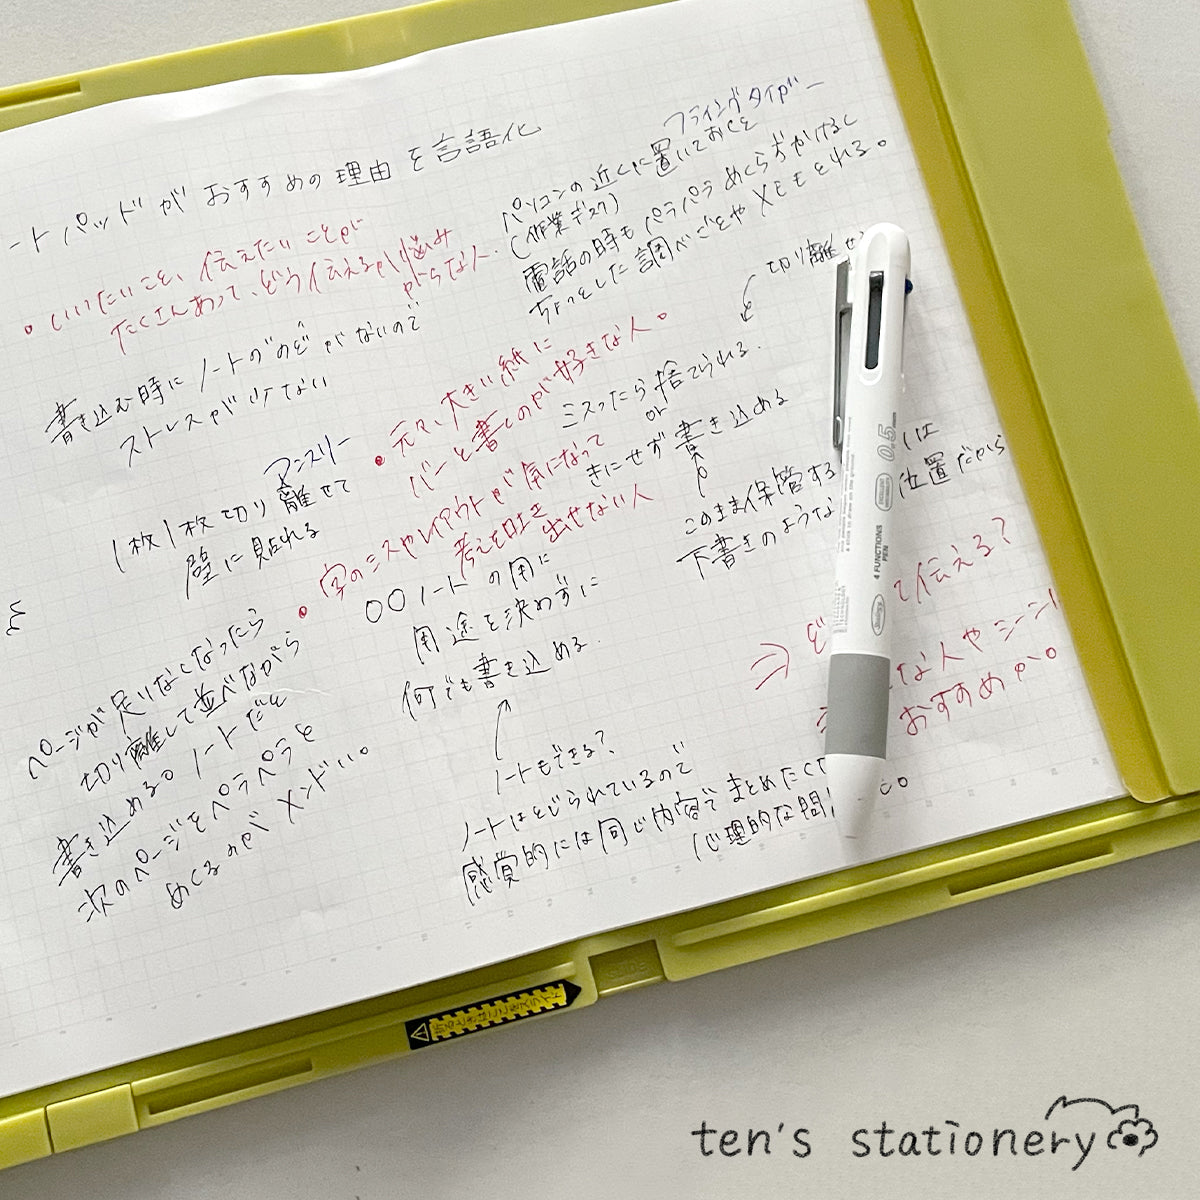 ートパッドがおすすめの理由を言語化
・いいたいこと、伝えたいことが
たくさんあって、どう伝えるか悩み
がちな人。
書き込む時にノートの"のど"がないので
ストレスが少ない
マンスリー
1枚1枚切り離せて
壁に貼れる
ページが足りなくなったら
切り離して並べながら
書き込める。ノートだと
次のページをペラペラと
めくるのがメンドい。
フライングタイガー
パソコンの近くに置いておくと
(作業デスク)
電話の時もパラパラめくらずかけるし
ちょっとした調べごとやメモもとれる。
・元々、大きい紙に
バーと書くのが好きな人。
・字のミスやレイアウトが気になって
考えを吐き出せない人
切り離せ
ミスったら捨てられる.
or
きにせず書き込める
このまま保管する
下書きのような
は
位置だから
〇〇ノートの用に
用途を決めずに
何でも書き込める.
ノートもできる?
ノートはとじられているので
感覚的には同じ内容でまとめたく
心理的な問
⇒ど
て伝える?
な人やシーン
おすすめか。
0.5
4 FUNCTIONS
PEN
ten's stationery